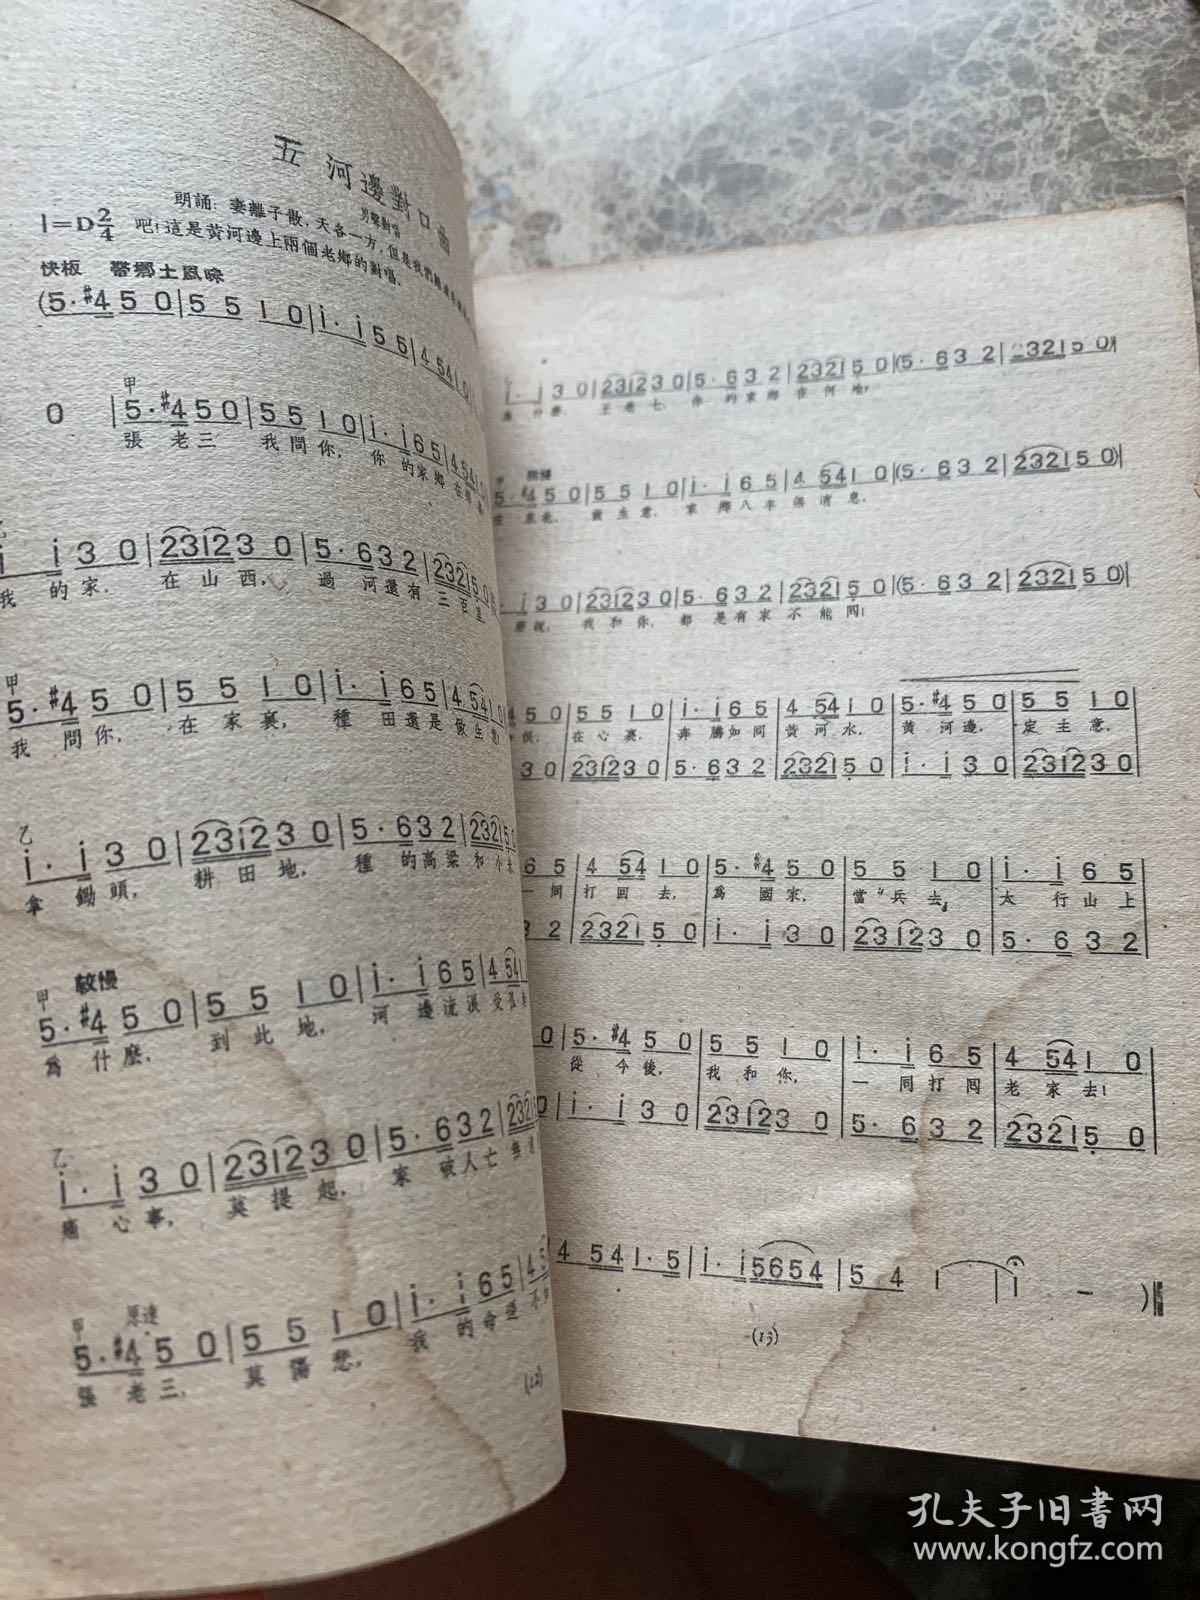 五 河邊對口曲
男聲對唱
朗誦：妻離子散，天各一方，但是我們
1=D2/4 吧！這是黃河邊上兩個老鄉的對唱．
快板 帶鄉土風味
(5·#4 5 0|5 5 1 0|i· i 5 5|4 5 4 1 0|
甲
0 |5·#4 5 0|5 5 1 0|i· i 6 5|4 5 4 1
張老三 我問你，你的家鄉在
i i 3 0|2 3 i 2 3 0|5· 6 3 2|2 3 2 1 5
我的家．在山西，過河還有三百里．
甲
5·#4 5 0|5 5 1 0|i· i 6 5|4 5 4 1 0
我問你，在家裏，種田還是做生意？
乙
i· i 3 0|2 3 i 2 3 0|5· 6 3 2|2 3 2 1 5
拿鋤頭，耕田地，種的高梁和小米
甲 較慢
5·#4 5 0|5 5 1 0|i· i 6 5|4 5 4 1
爲什麼，到此地，河邊流浪受孤
乙
i· i 3 0|2 3 i 2 3 0|5· 6 3 2|2 3 2 1
痛心事，莫提起，家破人亡無
甲 原速
5·#4 5 0|5 5 1 0|i· i 6 5|4 5
張老三，莫傷悲，我的命運不
(12)
i· i 3 0|2 3 i 2 3 0|5· 6 3 2|2 3 2 1 5 0|(5· 6 3 2|2 3 2 1 5 0)|
爲什麼．王老七，你的家鄉在何地？
甲 稍慢
5·#4 5 0|5 5 1 0|i· i 6 5|4 5 4 1 0|(5· 6 3 2|2 3 2 1 5 0)|
在東北，做生意．家鄉八年無消息．
i 3 0|2 3 i 2 3 0|5· 6 3 2|2 3 2 1 5 0|(5· 6 3 2|2 3 2 1 5 0)|
麼說，我和你，都是有家不能囘！
4 5 0|5 5 1 0|i· i 6 5|4 5 4 1 0|5·#4 5 0|5 5 1 0|
恨，在心裏，奔騰如同黃河水，黃河邊，定主意，
3 0|2 3 i 2 3 0|5· 6 3 2|2 3 2 1 5 0|i· i 3 0|2 3 i 2 3 0|
6 5|4 5 4 1 0|5·#4 5 0|5 5 1 0|i· i 6 5
一同打回去，爲國家，當兵去，太行山上
3 2|2 3 2 1 5 0|i· i 3 0|2 3 i 2 3 0|5· 6 3 2
0|5·#4 5 0|5 5 1 0|i· i 6 5|4 5 4 1 0
從今後，我和你，一同打囘老家去！
0|i· i 3 0|2 3 i 2 3 0|5· 6 3 2|2 3 2 1 5 0
4 5 4|1· 5|i· i 5 6 5 4|5 4 1|i - )
(13)
孔夫子旧書网
www.kongfz.com